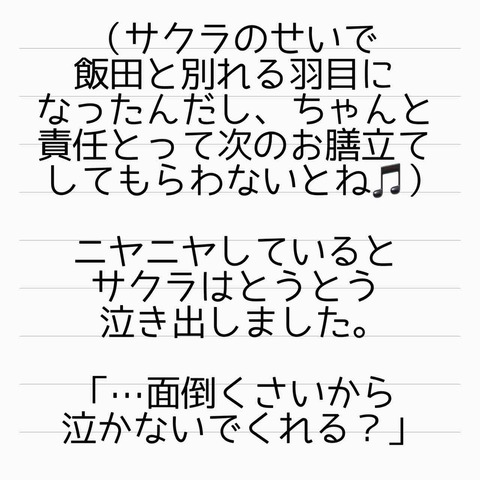 （サクラのせいで
飯田と別れる羽目に
なったんだし、ちゃんと
責任とって次のお膳立て
してもらわないとね🎵）
ニヤニヤしていると
サクラはとうとう
泣き出しました。
「…面倒くさいから
泣かないでくれる？」